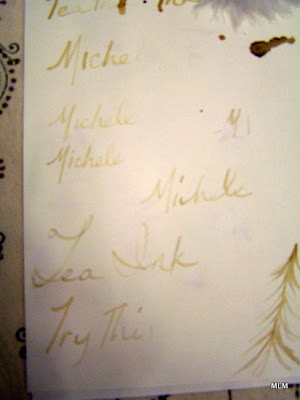 Michel
Michele M
Michele
Michele
Tea Ink
Try This
MLM